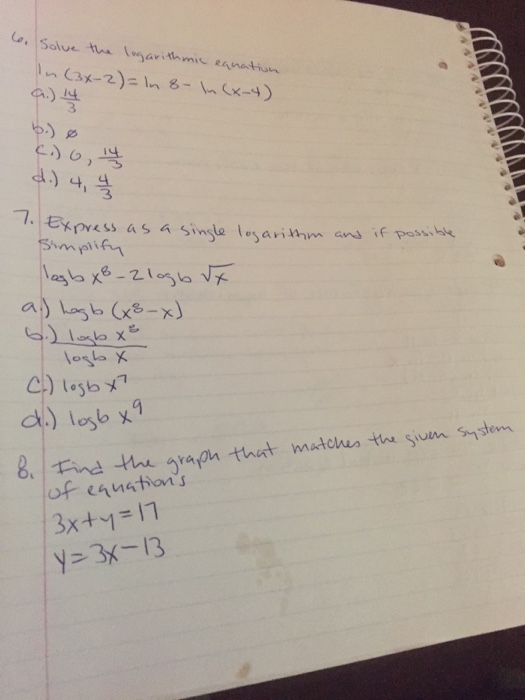 6. Solve the logarithmic equation
ln (3x-2) = ln 8 - ln (x-4)
a.) 14/3
b.) ∅
c.) 0, 14/3
d.) 4, 4/3
7. Express as a single logarithm and if possible
simplify
logb x⁸ - 2 logb √x
a.) logb (x⁸-x)
b.) logb x⁸
logb x
c.) logb x⁷
d.) logb x⁹
8. Find the graph that matches the given system
of equations
3x+y=17
y=3x-13